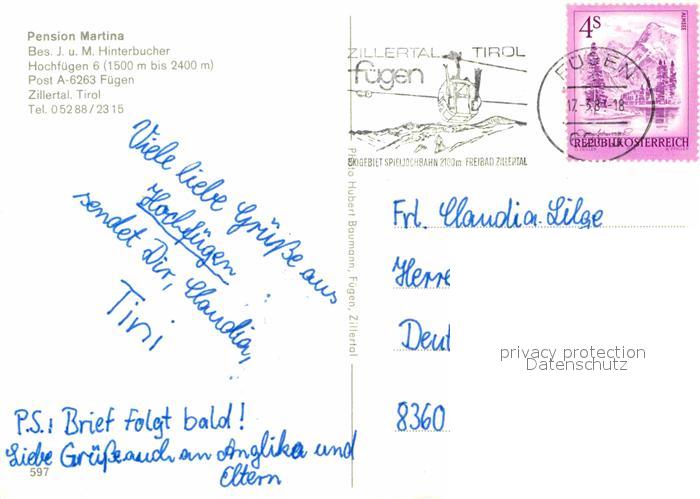 Pension Martina
Bes. J. u. M. Hinterbucher
Hochfügen 6 (1500 m bis 2400 m)
Post A-6263 Fügen
Zillertal. Tirol
Tel. 0 52 88 / 23 15
ZILLERTAL TIROL
fügen
SKIGEBIET SPIELJOCHBAHN 2100m FREIBAD ZILLERTAL
4S
ALMSEE
FÜGEN
REPUBLIK ÖSTERREICH
Viele liebe Grüße aus
Hochfügen
sendet Dir, Claudia,
Tini
P.S.: Brief folgt bald!
Liebe Grüße auch an Anglika und
Eltern
597
Hubert Baumann, Fügen, Zillertal
Frl. Claudia Lilge
Herre
Deu
8360
privacy protection
Datenschutz